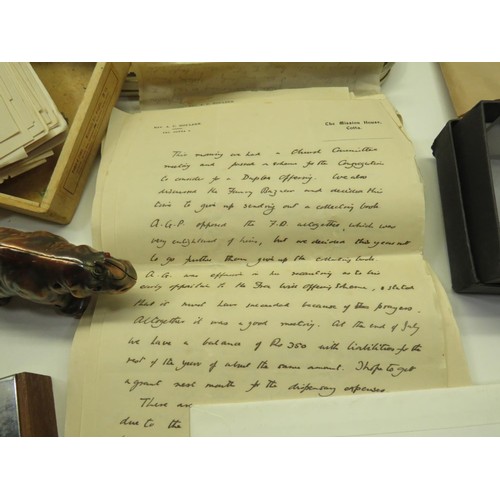 The Mission House,
Cotta.
This morning we had a Church Committee
meeting and passed a scheme for the Congregation
to consider for a Duplex Offering. We also
discussed the Fancy and decided this
time to give up sending out a collecting book
A.G.P. opposed the F.D. altogether, which was
very enlightened of him, but we decided this year not
to go further than give up the collecting books
A.G. was in his as to his
early opposition to the Free Will offering scheme, & stated
that it must have succeeded because of his prayers.
Altogether it was a good meeting. At the end of July
we have a balance of Rs 350 with liabilities for the
rest of the year of about the same amount. I hope to get
a grant next month for the dispensary expenses
There are
due to the